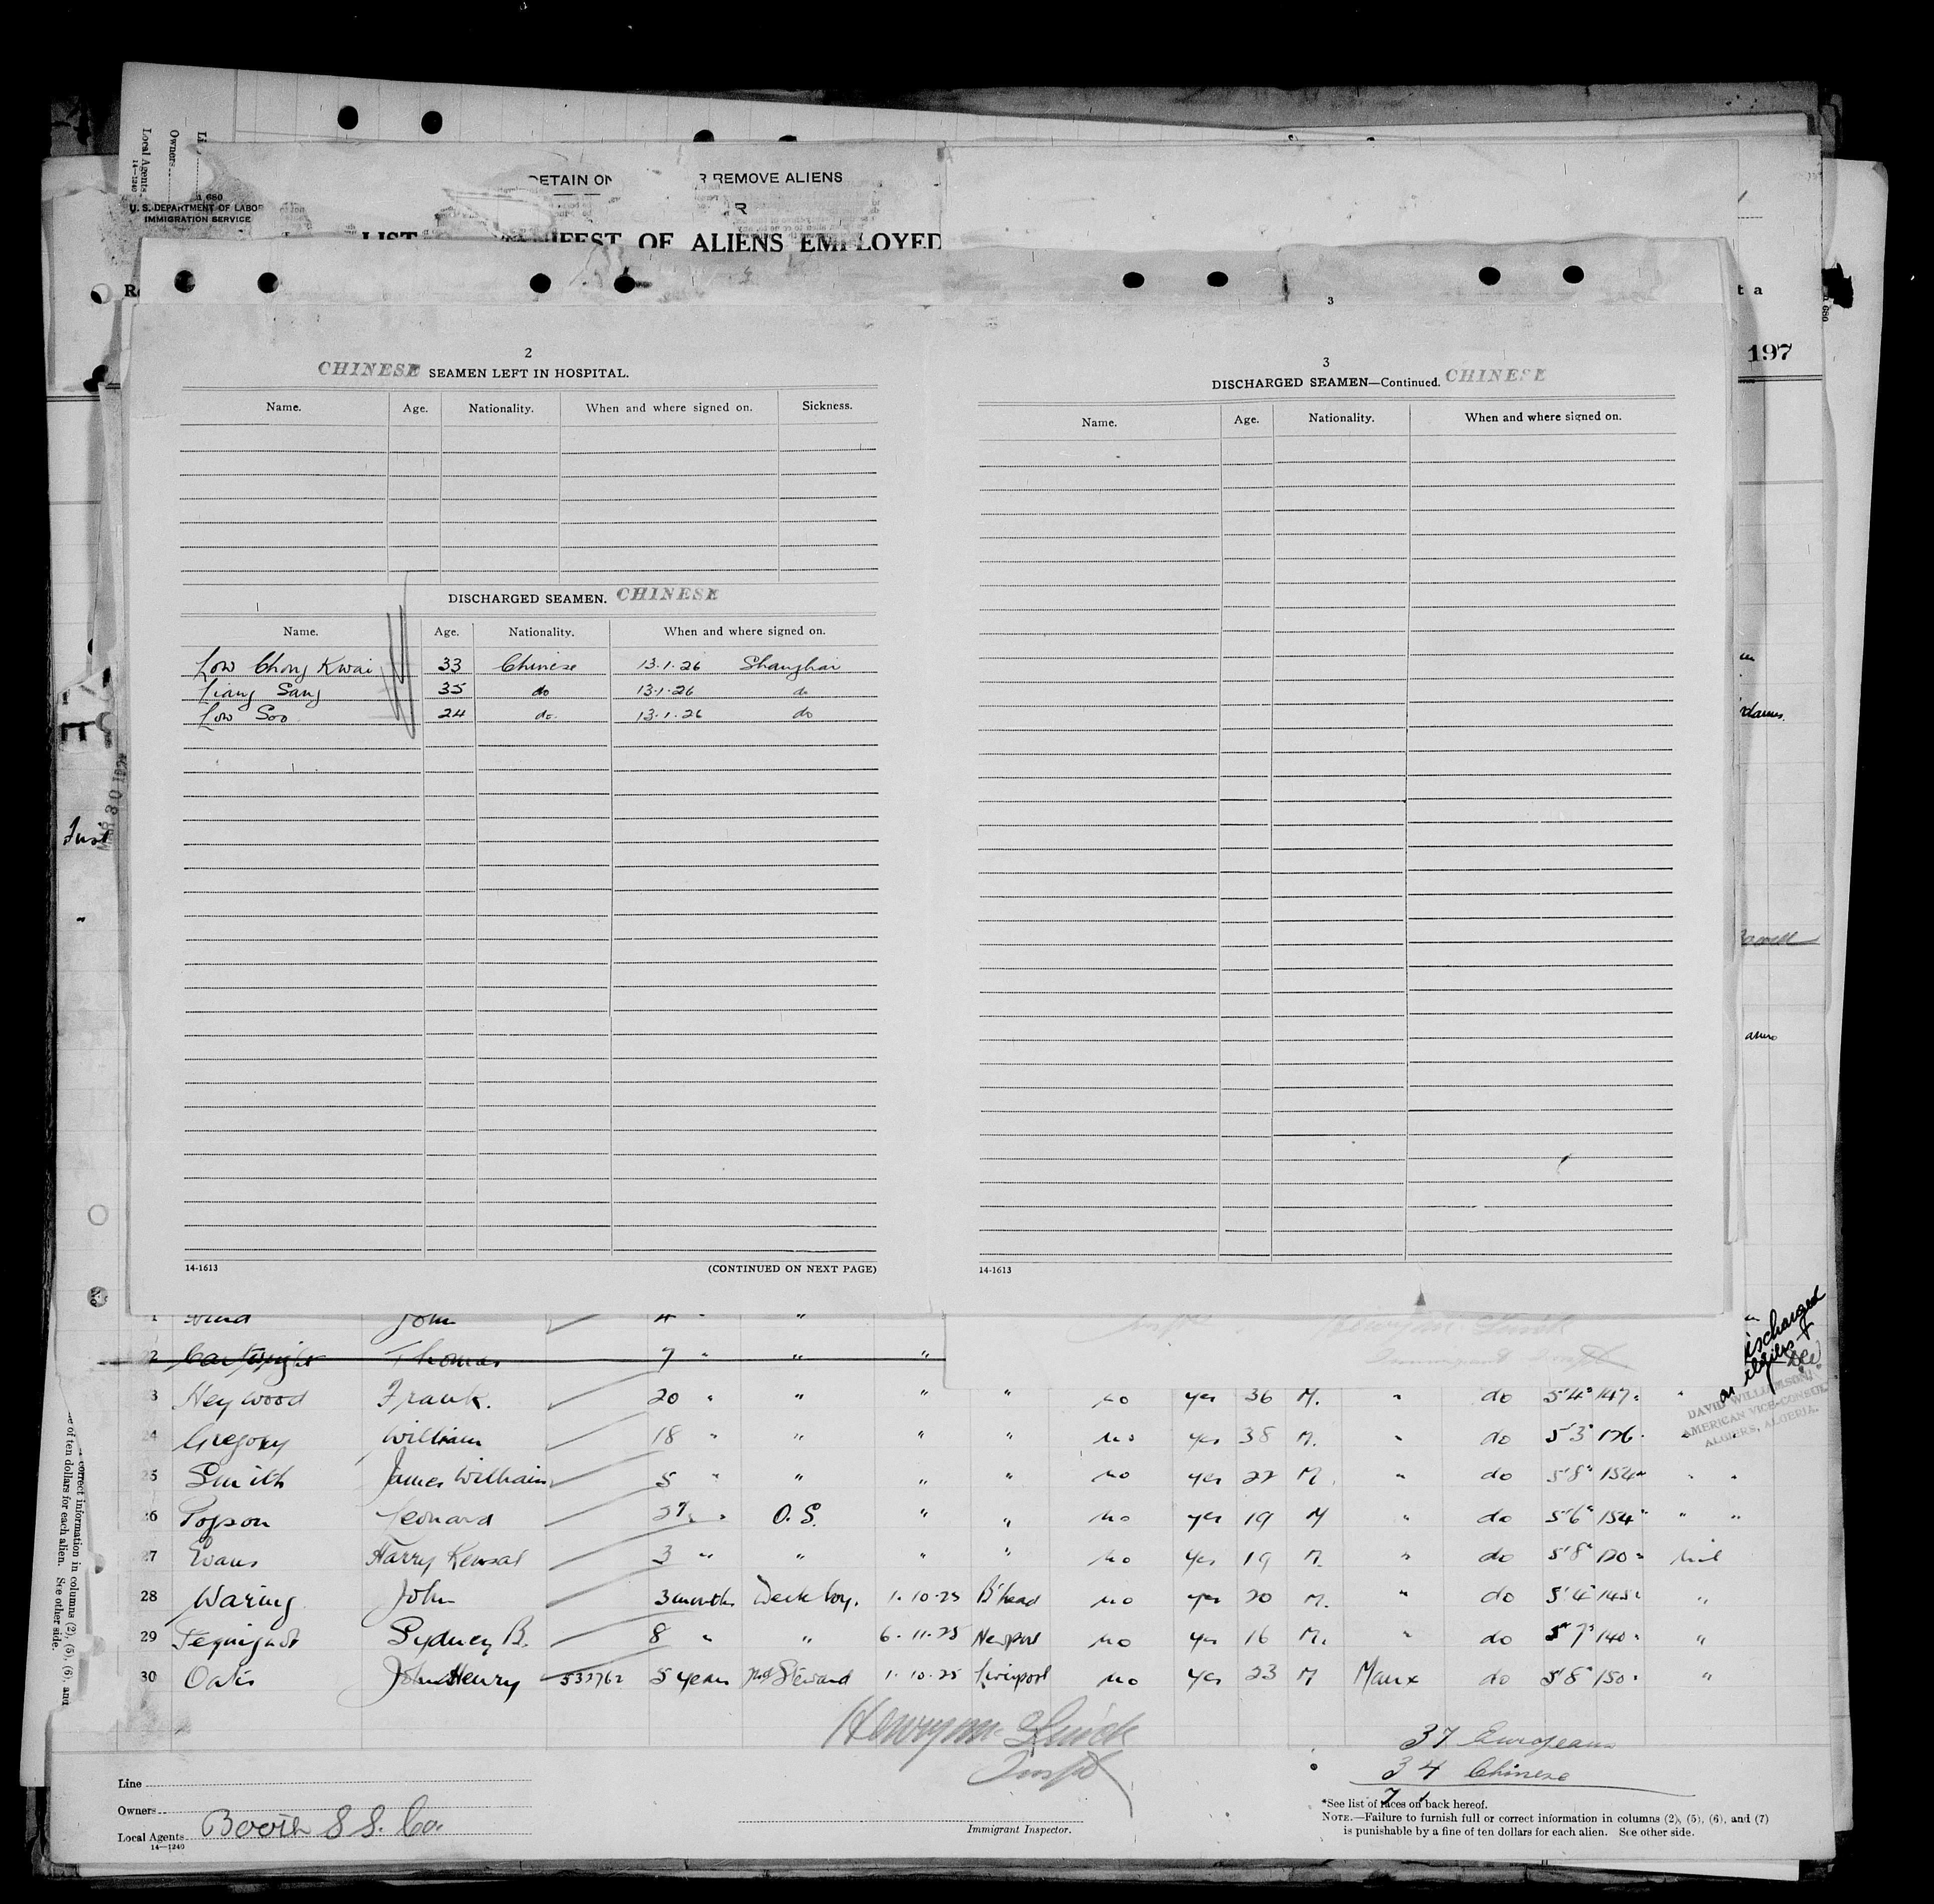 Local Agents
Owners
14—1240
680
U. S. DEPARTMENT OF LABOR
IMMIGRATION SERVICE
DETAIN OR REMOVE ALIENS
LIST IFEST OF ALIENS EMPLOYED
197
3
2
CHINESE SEAMEN LEFT IN HOSPITAL.
Name. Age. Nationality. When and where signed on. Sickness.
DISCHARGED SEAMEN. CHINESE
Name. Age. Nationality. When and where signed on.
Low Chong Kwai 33 Chinese 13.1.26 Shanghai
Liang Sang 35 do 13.1.26 do
Low Soo 24 do. 13.1.26 do
14-1613 (CONTINUED ON NEXT PAGE)
3
DISCHARGED SEAMEN—Continued. CHINESE
Name. Age. Nationality. When and where signed on.
14-1613
John 4 " "
Cartwright Thomas 7 " " "
3 Heywood Frank. 20 " " " " no yes 36 M. " do 5'4" 147
24 Gregory William 18 " " " " no yes 38 M. " do 5'3"
25 Smith James William 5 " " " " no yes 22 M. " do 5'8" 154 " "
26 Topson Leonard O.S. " " no yes 19 M " do 5'6" 154 " "
27 Evans Harry 3 " " " " no yes 19 M. " do 5'8" nil
28 Waring John 3 months Deck boy. 1.10.25 B'head no yes 20 M. " do 5'4" 145 "
29 Sydney B. 8 " " 6.11.25 Newport no yes 16 M. " do 5'7" 140 "
30 John Henry 5 years Steward 1.10.25 Liverpool no yes 23 M Manx do 5'8" 150 "
discharged
DAVID WILLIAMSON
AMERICAN VICE-CONSUL
ALGIERS, ALGERIA.
37 Europeans
34 Chinese
71
Line
Owners
Booth S S. Co.
Local Agents
14—1240
Immigrant Inspector.
*See list of races on back hereof.
NOTE.—Failure to furnish full or correct information in columns (2), (5), (6), and (7)
is punishable by a fine of ten dollars for each alien. See other side.
correct information in columns (2), (5), (6), and
of ten dollars for each alien. See other side.